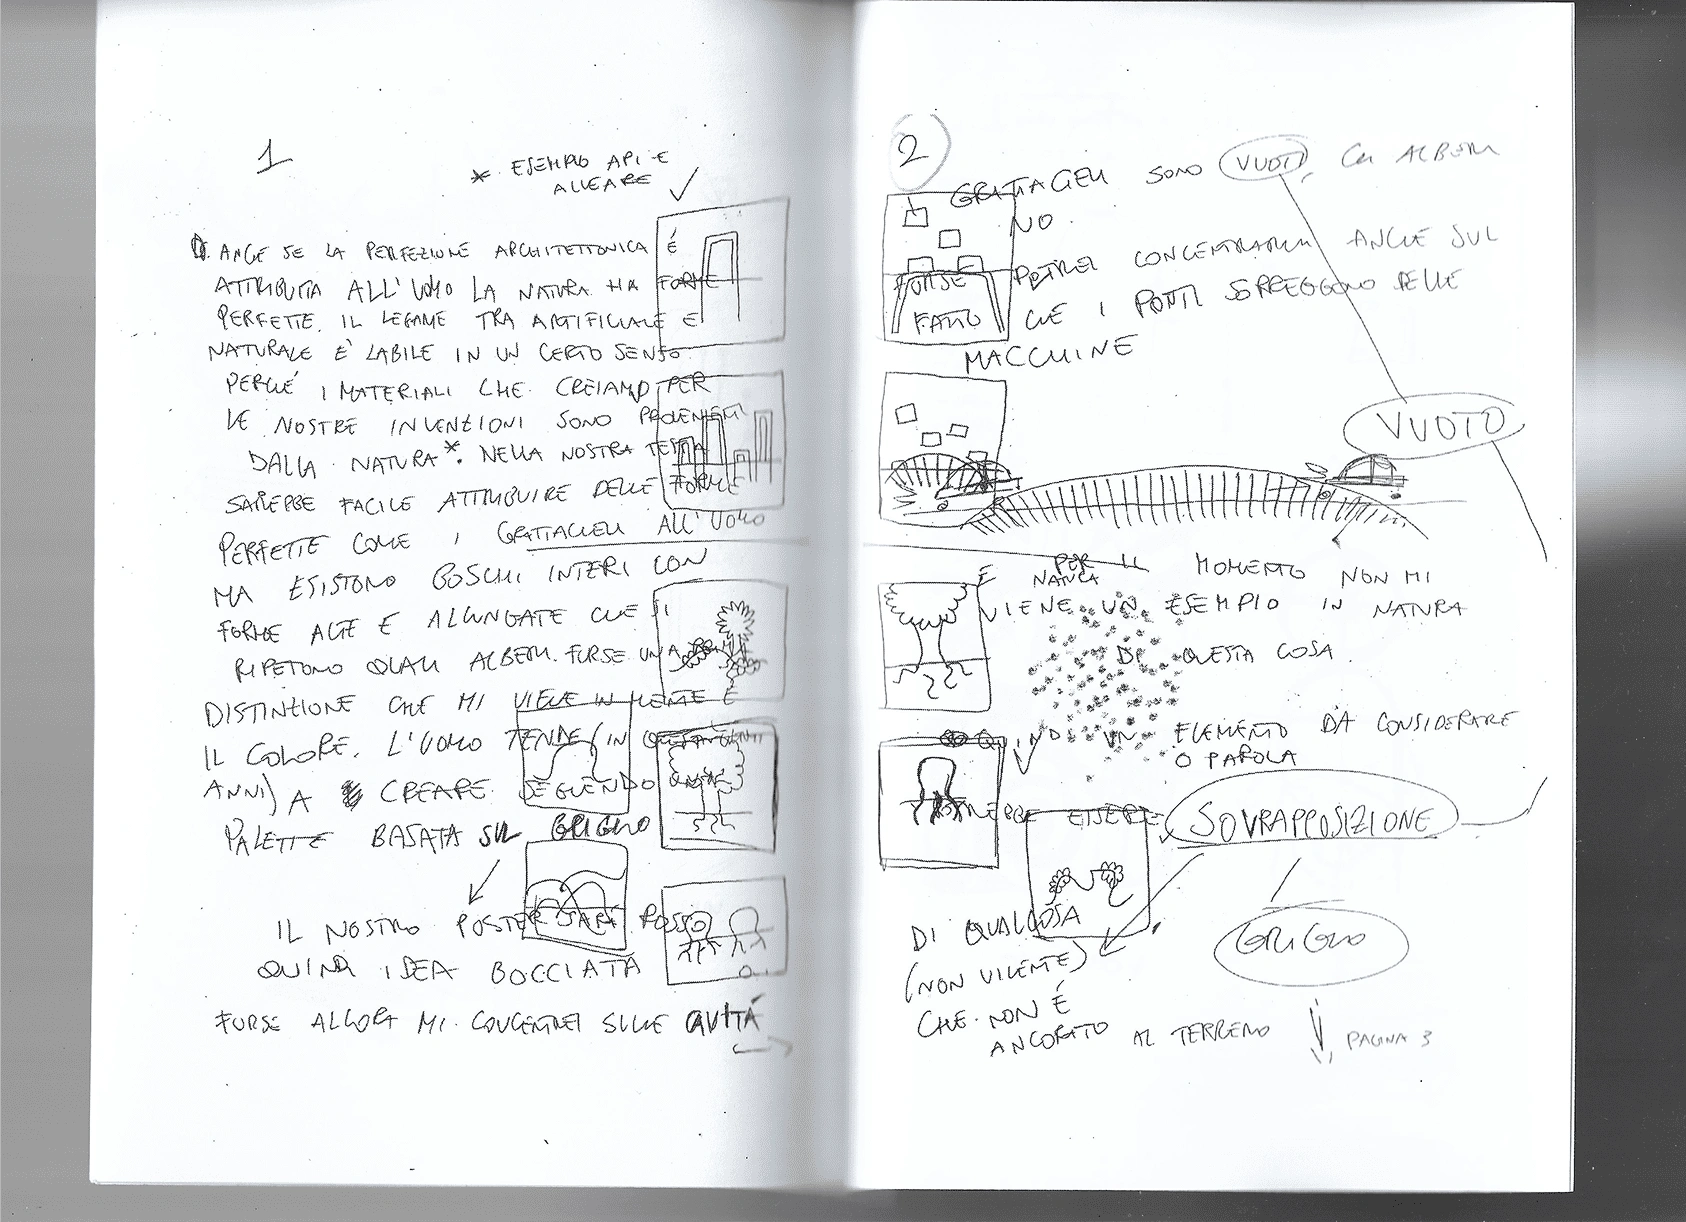 1
* ESEMPIO API E
ALVEARE
ANCHE SE LA PERFEZIONE ARCHITETTONICA É
ATTRIBUITA ALL'UOMO LA NATURA HA FORME
PERFETTE. IL LEGAME TRA ARTIFICIALE E
NATURALE E' LABILE IN UN CERTO SENSO
PERCHÉ I MATERIALI CHE CREIAMO PER
LE NOSTRE INVENZIONI SONO PROVENIENTI
DALLA NATURA*. NELLA NOSTRA TESTA
SAREBBE FACILE ATTRIBUIRE DELLE FORME
PERFETTE COME I GRATTACIELI ALL'UOMO
MA ESISTONO BOSCHI INTERI CON
FORME ALTE E ALLUNGATE CHE SI
RIPETONO QUALI ALBERI. FORSE UNA PRIMA
DISTINZIONE CHE MI VIENE IN MENTE É
IL COLORE. L'UOMO TENDE (IN QUESTI
ANNI) A CREARE SEGUENDO
PALETTE BASATA SUL GRIGIO
IL NOSTRO POSTER SARÁ ROSSO
QUINDI IDEA BOCCIATA
FORSE ALLORA MI CONCENTREI SULLE CAVITÁ
2
GRATTACIELI SONO VUOTI, GLI ALBERI
NO.
POTREI CONCENTRARMI ANCHE SUL
FORSE
FATTO CHE I PONTI SORREGGONO DELLE
MACCHINE
VUOTO
PER IL MOMENTO NON MI
E NATURA
VIENE UN ESEMPIO IN NATURA
DI QUESTA COSA.
QUINDI UN ELEMENTO DA CONSIDERARE
O PAROLA
POTREBBE ESSERE SOVRAPPOSIZIONE
DI QUALCOSA
(NON VIVENTE)
CHE NON É
ANCORATO AL TERRENO
GRIGIO
PAGINA 3